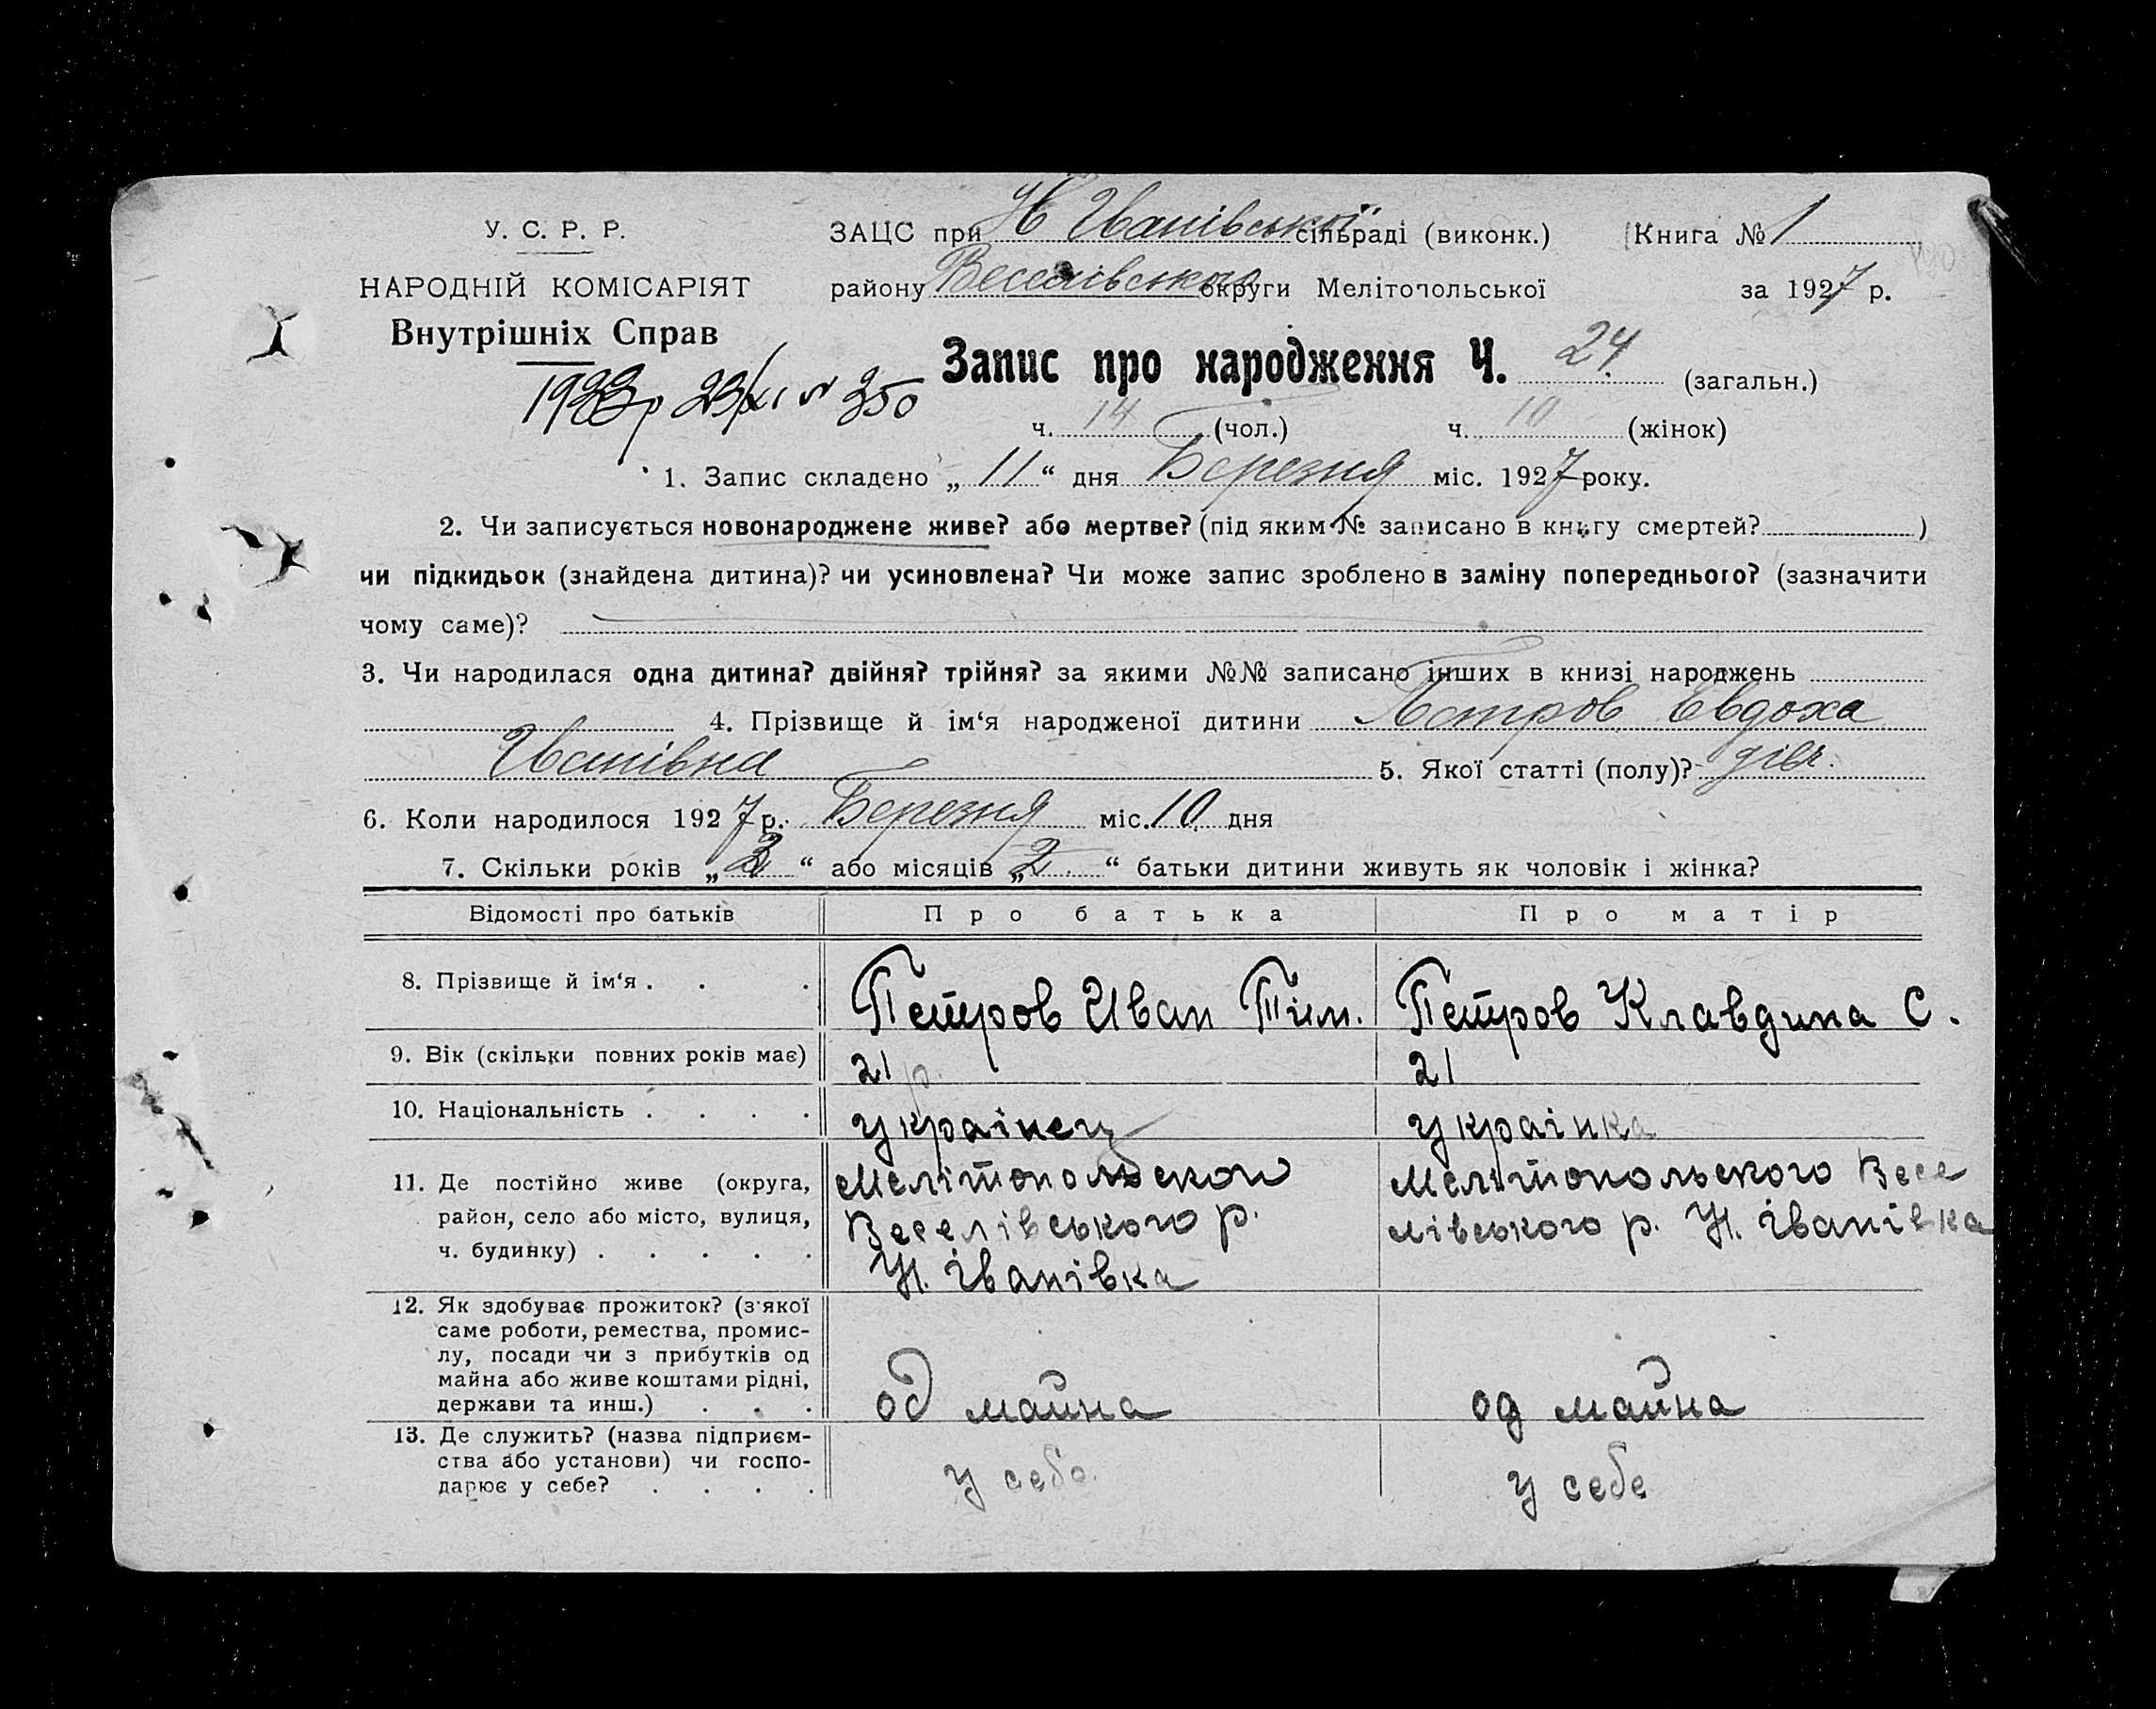 У. С. Р. Р.
НАРОДНІЙ КОМІСАРІЯТ
Внутрішніх Справ
ЗАЦС при Н Іванівської сільраді (виконк.) Книга № 1
району Веселівського округи Мелітопольської за 1927 р.
Запис про народження Ч. 24 (загальн.)
23/XI № 350
ч. 14 (чол.) ч. 10 (жінок)
1. Запис складено „ 11 “ дня Березня міс. 1927 року.
2. Чи записується новонароджене живе? або мертве? (під яким № записано в книгу смертей? )
чи підкидьок (знайдена дитина)? чи усиновлена? Чи може запис зроблено в заміну попереднього? (зазначити
чому саме)?
3. Чи народилася одна дитина? двійня? трійня? за якими №№ записано інших в книзі народжень
4. Прізвище й ім‘я народженої дитини Петров Евдоха
Иванівна 5. Якої статті (полу)? дівч.
6. Коли народилося 1927 р. Березня міс. 10 дня
7. Скільки років „ 2 “ або місяців „ 2 “ батьки дитини живуть як чоловік і жінка?
Відомості про батьків Про батька Про матір
8. Прізвище й ім‘я . . . Петров Иван Тим. Петров Клавдина С.
9. Вік (скільки повних років має) 21 р. 21
10. Національність . . . . украінец украінка
11. Де постійно живе (округа, район, село або місто, вулиця, ч. будинку) . . . . .
Мелітопольскои
Веселівського р.
Н. Іванівка
Мелітопольского Весе
лівського р. Н. Іванівка
12. Як здобуває прожиток? (з'якої
саме роботи, ремества, промис-
лу, посади чи з прибутків од
майна або живе коштами рідні,
держави та инш.) . . .
од майна од майна
13. Де служить? (назва підприєм-
ства або установи) чи госпо-
дарює у себе? . . . .
у себе у себе